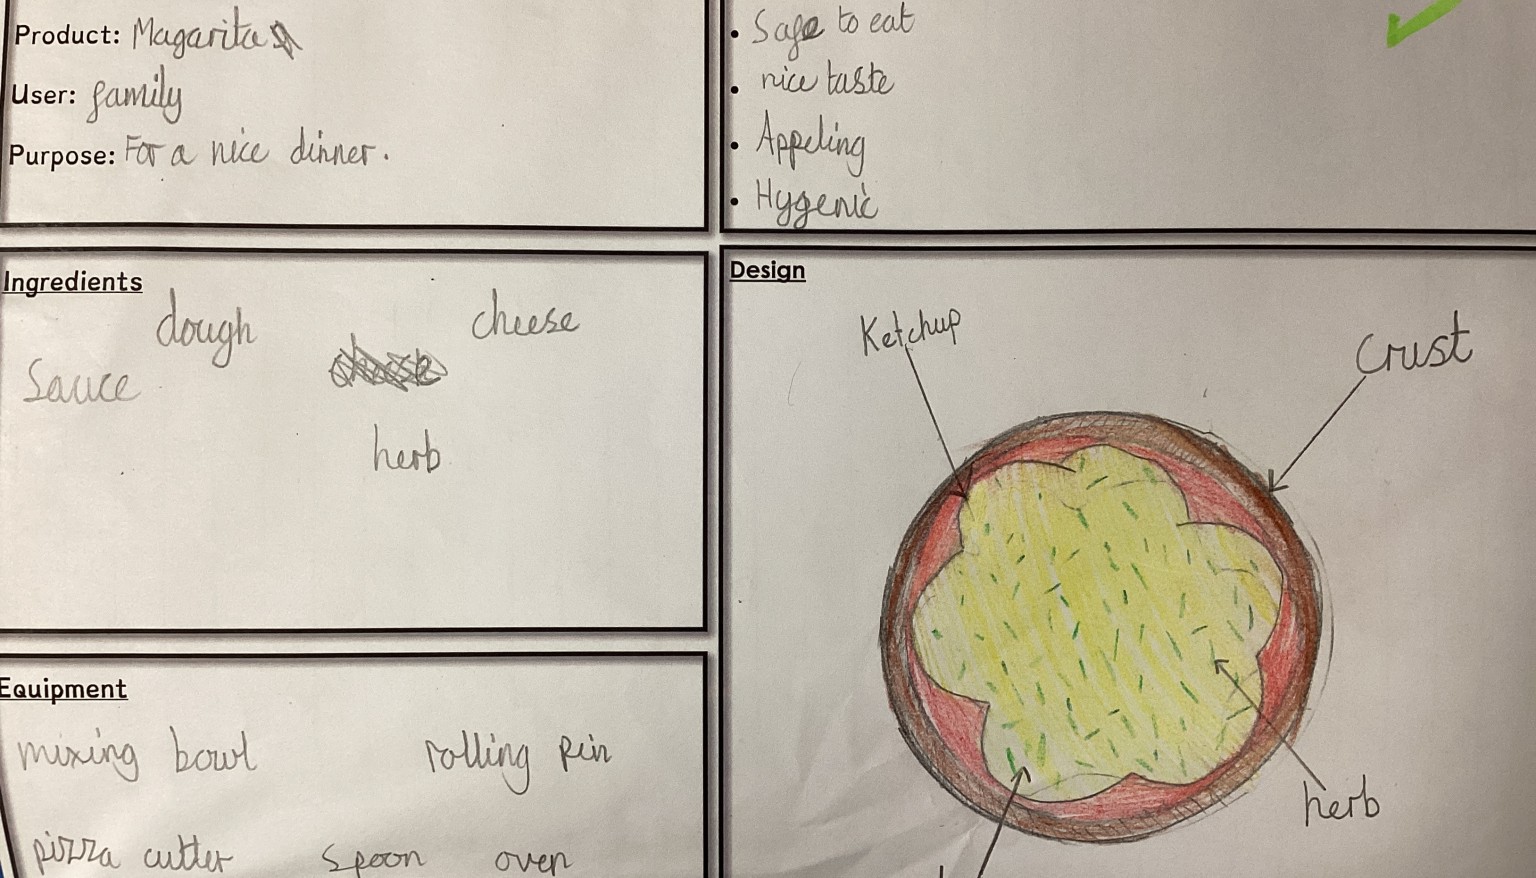 Product: Magarita
User: family
Purpose: For a nice dinner.
• Safe to eat
• nice taste
• Appeling
• Hygenic
Ingredients
dough
cheese
Sauce
herb
Equipment
mixing bowl
rolling pin
pizza cutter
spoon
oven
Design
Ketchup
Crust
herb